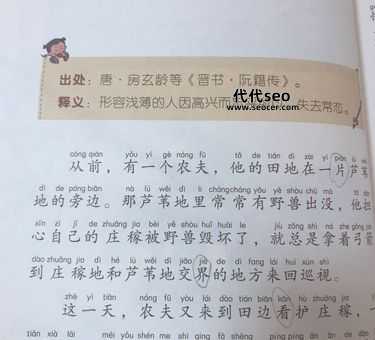 出处：唐·房玄龄等《晋书·阮籍传》。
释义：形容浅薄的人因高兴而 失去常态。
代代seo
www.seocer.com
cóng qián yǒu yí gè nóng fū tā de tián dì zài yí piàn lú
从前，有一个农夫，他的田地在一片芦苇
dì de páng biān nà lú wěi dì li cháng cháng yǒu yě shòu chū mò tā dān
地的旁边。那芦苇地里常常有野兽出没，他担
xīn zì jǐ de zhuāng jia bèi yě shòu huǐ huài le jiù zǒng shì ná zhe gōng jiàn
心自己的庄稼被野兽毁坏了，就总是拿着弓箭
dào zhuāng jia dì hé lú wěi dì jiāo jiè de dì fang lái huí xún shì
到庄稼地和芦苇地交界的地方来回巡视。
zhè yì tiān nóng fū yòu lái dào tián biān kān hù zhuāng jia
这一天，农夫又来到田边看护庄稼，一
tiān xià lái méi yǒu shén me shì qing fā shēng